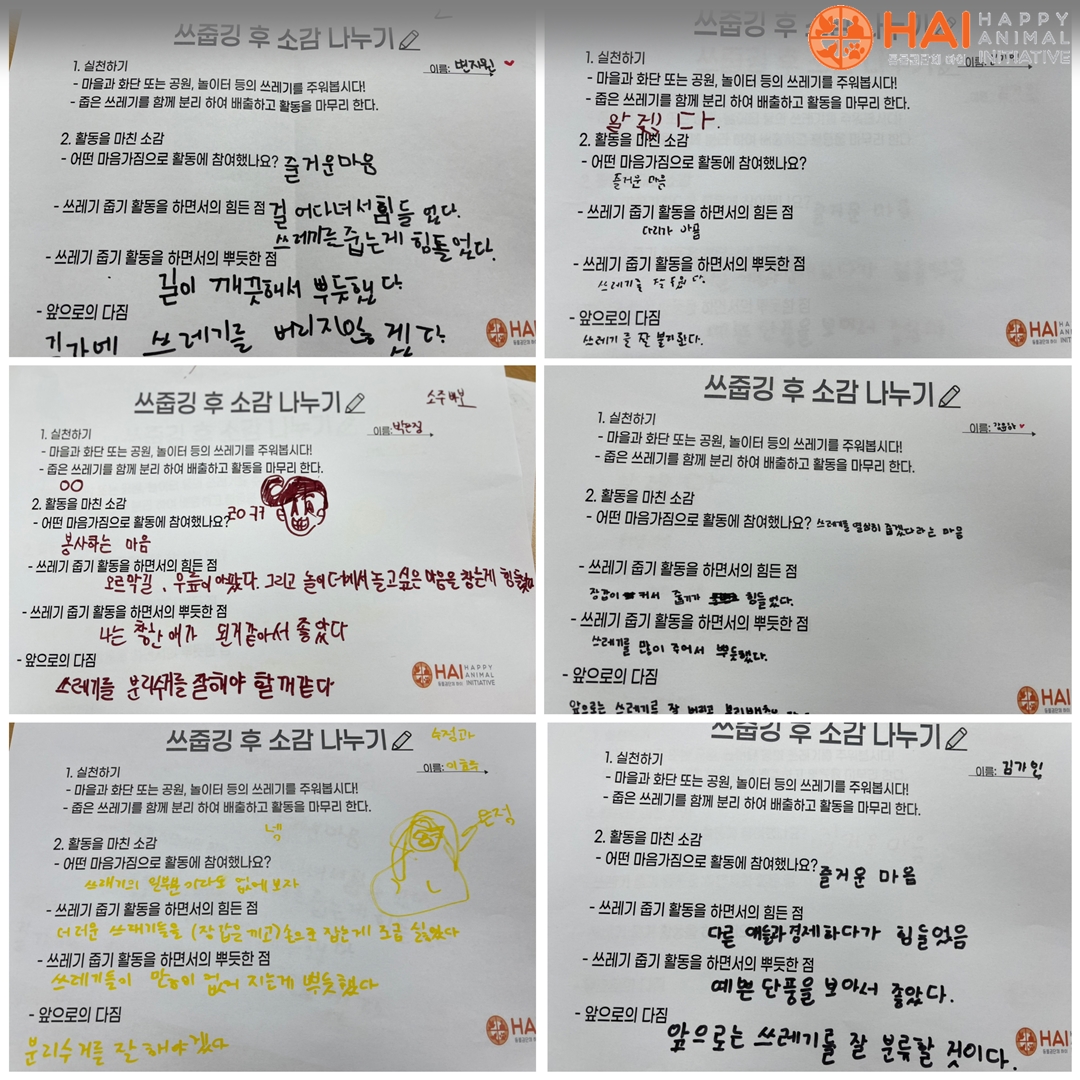 HAI HAPPY ANIMAL INITIATIVE
동물공단체 하이
쓰줍깅 후 소감 나누기
이름: 변지원
1. 실천하기
- 마을과 화단 또는 공원, 놀이터 등의 쓰레기를 주워봅시다!
- 줍은 쓰레기를 함께 분리 하여 배출하고 활동을 마무리 한다.
2. 활동을 마친 소감
- 어떤 마음가짐으로 활동에 참여했나요? 즐거운마음
- 쓰레기 줍기 활동을 하면서의 힘든 점 걸어다녀서 힘들었다.
쓰레기른줍는게 힘들었다.
- 쓰레기 줍기 활동을 하면서의 뿌듯한 점
길이 깨끗해서 뿌듯했다
- 앞으로의 다짐
길가에 쓰레기를 버리지않겠다
HAI
쓰줍깅 후 소감 나누기
1. 실천하기
- 마을과 화단 또는 공원, 놀이터 등의 쓰레기를 주워봅시다!
- 줍은 쓰레기를 함께 분리 하여 배출하고 활동을 마무리 한다.
2. 활동을 마친 소감
- 어떤 마음가짐으로 활동에 참여했나요?
즐거운 마음
- 쓰레기 줍기 활동을 하면서의 힘든 점
다리가 아픔
- 쓰레기 줍기 활동을 하면서의 뿌듯한 점
쓰레기를
- 앞으로의 다짐
쓰레기를 잘
HAI
쓰줍깅 후 소감 나누기
소주
이름: 박은정
1. 실천하기
- 마을과 화단 또는 공원, 놀이터 등의 쓰레기를 주워봅시다!
- 줍은 쓰레기를 함께 분리 하여 배출하고 활동을 마무리 한다.
OO
2. 활동을 마친 소감
- 어떤 마음가짐으로 활동에 참여했나요?
봉사하는 마음
- 쓰레기 줍기 활동을 하면서의 힘든 점
오르막길, 무릎이 아팠다. 그리고 놀이터에서 놀고싶은 마음을 참는게 힘들었다
- 쓰레기 줍기 활동을 하면서의 뿌듯한 점
나는 착한 애가 된거같아서 좋았다
- 앞으로의 다짐
쓰레기를 분리수거를 잘해야 할꺼같다
HAI HAPPY ANIMAL INITIATIVE
쓰줍깅 후 소감 나누기
이름: 김윤하
1. 실천하기
- 마을과 화단 또는 공원, 놀이터 등의 쓰레기를 주워봅시다!
- 줍은 쓰레기를 함께 분리 하여 배출하고 활동을 마무리 한다.
2. 활동을 마친 소감
- 어떤 마음가짐으로 활동에 참여했나요? 쓰레기를 열심히 줍겠다라는 마음
- 쓰레기 줍기 활동을 하면서의 힘든 점
장갑이 커서 줍기가 힘들었다.
- 쓰레기 줍기 활동을 하면서의 뿌듯한 점
쓰레기를 많이 주어서 뿌듯했다.
- 앞으로의 다짐
앞으로는 쓰레기를 잘 버리고
HAI
쓰줍깅 후 소감 나누기
수정과
이름: 이효주
1. 실천하기
- 마을과 화단 또는 공원, 놀이터 등의 쓰레기를 주워봅시다!
- 줍은 쓰레기를 함께 분리 하여 배출하고 활동을 마무리 한다.
넥
은정
2. 활동을 마친 소감
- 어떤 마음가짐으로 활동에 참여했나요?
쓰래기의 일부분 이라도 없에보자
- 쓰레기 줍기 활동을 하면서의 힘든 점
더러운 쓰래기들을 (장갑은 끼고)손으로 잡는게 조금 싫었다
- 쓰레기 줍기 활동을 하면서의 뿌듯한 점
쓰레기들이 많이 없어 지는게 뿌듯했다
- 앞으로의 다짐
분리수거를 잘 해야겠다
HAI
쓰줍깅 후 소감 나누기
이름: 김가인
1. 실천하기
- 마을과 화단 또는 공원, 놀이터 등의 쓰레기를 주워봅시다!
- 줍은 쓰레기를 함께 분리 하여 배출하고 활동을 마무리 한다.
2. 활동을 마친 소감
- 어떤 마음가짐으로 활동에 참여했나요? 즐거운 마음
- 쓰레기 줍기 활동을 하면서의 힘든 점
다른 얘들과경제하다가 힘들었음
- 쓰레기 줍기 활동을 하면서의 뿌듯한 점
예쁜 단풍을 보아서 좋았다.
- 앞으로의 다짐
앞으로는 쓰레기를 잘 분류할 것이다.
HAI